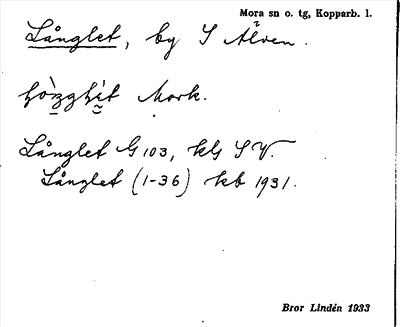 Mora sn o. tg, Kopparb. l.
Långlet, by S Älven.
Mork.
Långlet G 103, klg S V.
Långlet (1-36) kb 1931.
Bror Lindén 1933